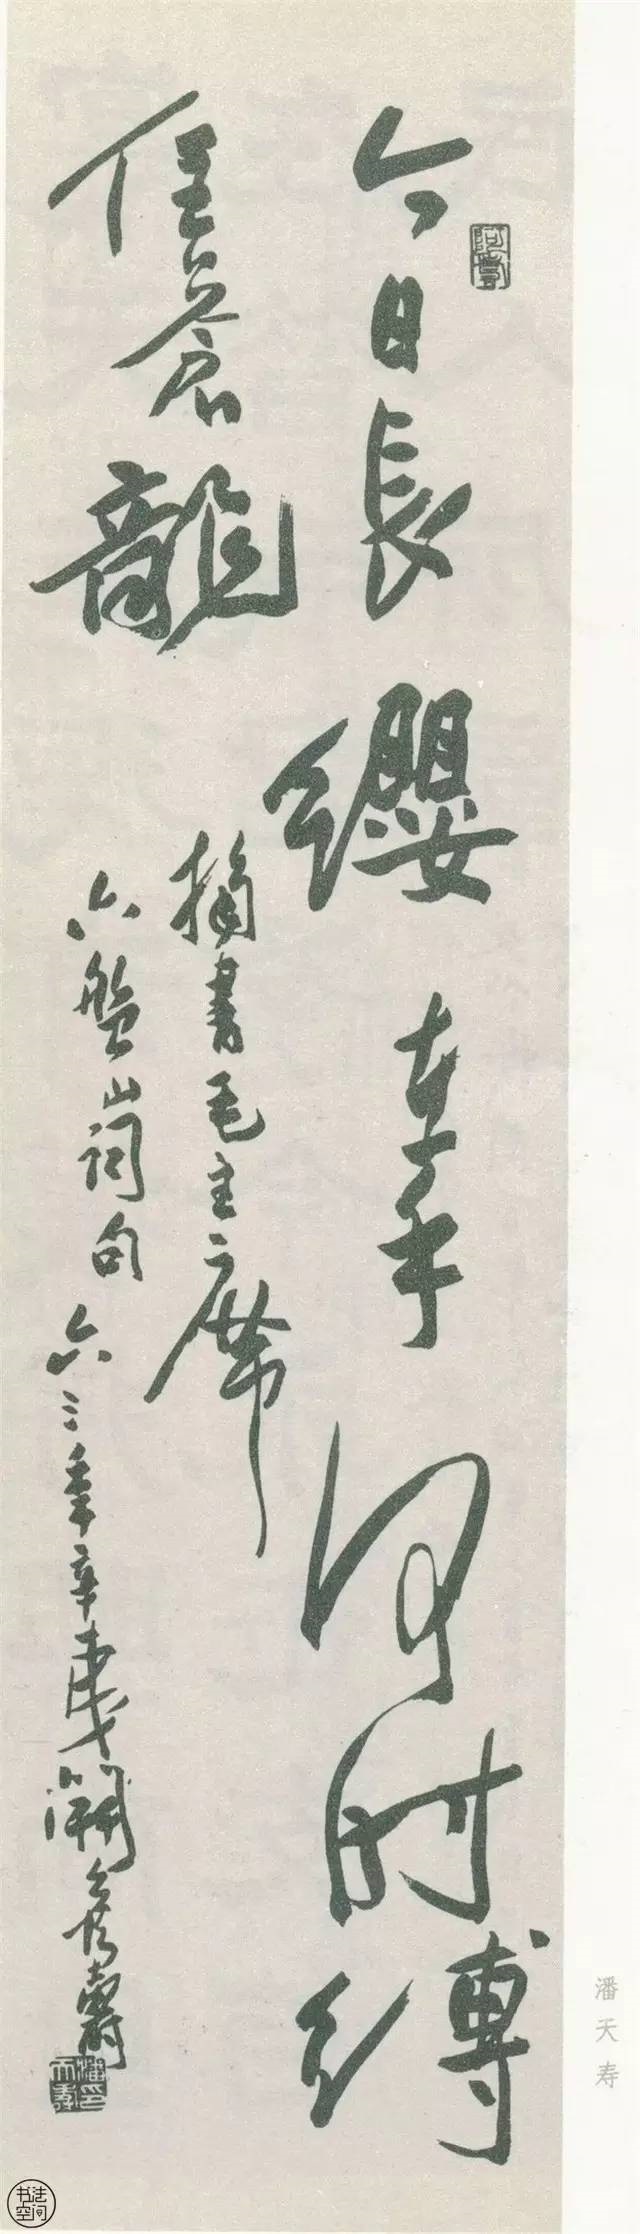 今日長纓在手何时縛
住蒼龍
摘書毛主席
六盤山詞句六三年辛
寿
阿壽
潘天寿印
潘天寿
书法空间